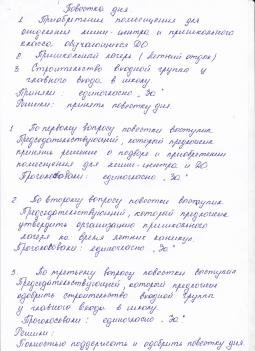 Повестка дня
1. Приобретение помещения для
отделения мини-центра и пришкольного
класса, обучающегося ДО
2. Пришкольный лагерь (летний отдых)
3. Строительство входной группы у
главного входа в школу.
Приняли: единогласно "За"
Решили: принять повестку дня.
1 По первому вопросу повестки выступил
Председательствующий, который предложил
принять решение о подборе и приобретении
помещения для мини-центра и ДО
Проголосовали: единогласно "За"
2 По второму вопросу повестки выступил
Председательствующий, который предложил
утвердить организацию пришкольного
лагеря во время летних каникул.
Проголосовали: единогласно "За"
3. По третьему вопросу повестки выступил
Председательствующий, который предложил
одобрить строительство входной группы
у главного входа в школу.
Проголосовали: единогласно "За"
Решили:
Полностью поддержать и одобрить повестку дня.